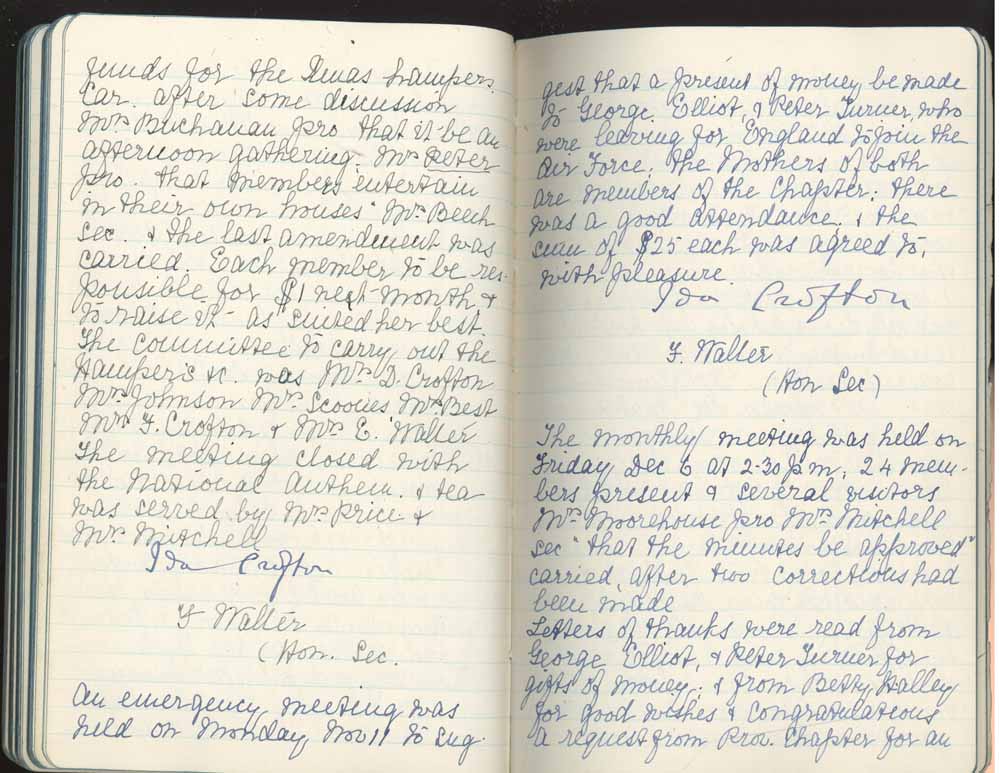 funds for the Xmas hampers.
Car. after some discussion
Mrs Buchanan pro that it be an
afternoon gathering. Mrs Peter
pro. that members entertain
in their own houses" Mrs Beech
sec. & the last amendment was
carried. Each member to be res-
ponsible for $1 next month &
to raise it as suited her best.
The committee to carry out the
Hampers &c. was Mrs D. Crofton
Mrs Johnson Mrs Scoones Mrs Best
Mrs F. Crofton & Mrs E. Walter
The meeting closed with
the National Anthem. & tea
was served by Mrs Price &
Mrs Mitchell
Ida Crofton
F Walter
(Hon. Sec.
An emergency meeting was
held on Monday Nov 11 to sug-
gest that a present of money be made
to George Elliot, & Peter Turner, who
were leaving for England to join the
Air Force; the Mothers of both
are members of the Chapter; there
was a good attendance, & the
sum of $25 each was agreed to,
with pleasure.
Ida Crofton
F. Walter
(Hon Sec)
The monthly meeting was held on
Friday Dec 6 at 2-30 pm; 24 mem-
bers present & several visitors
Mrs Moorehouse pro Mrs Mitchell
sec "that the minutes be approved"
carried, after two corrections had
been made
Letters of thanks were read from
George Elliot, & Peter Turner for
gifts of money; & from Betty Halley
for good wishes & congratulations
a request from Prov. Chapter for an